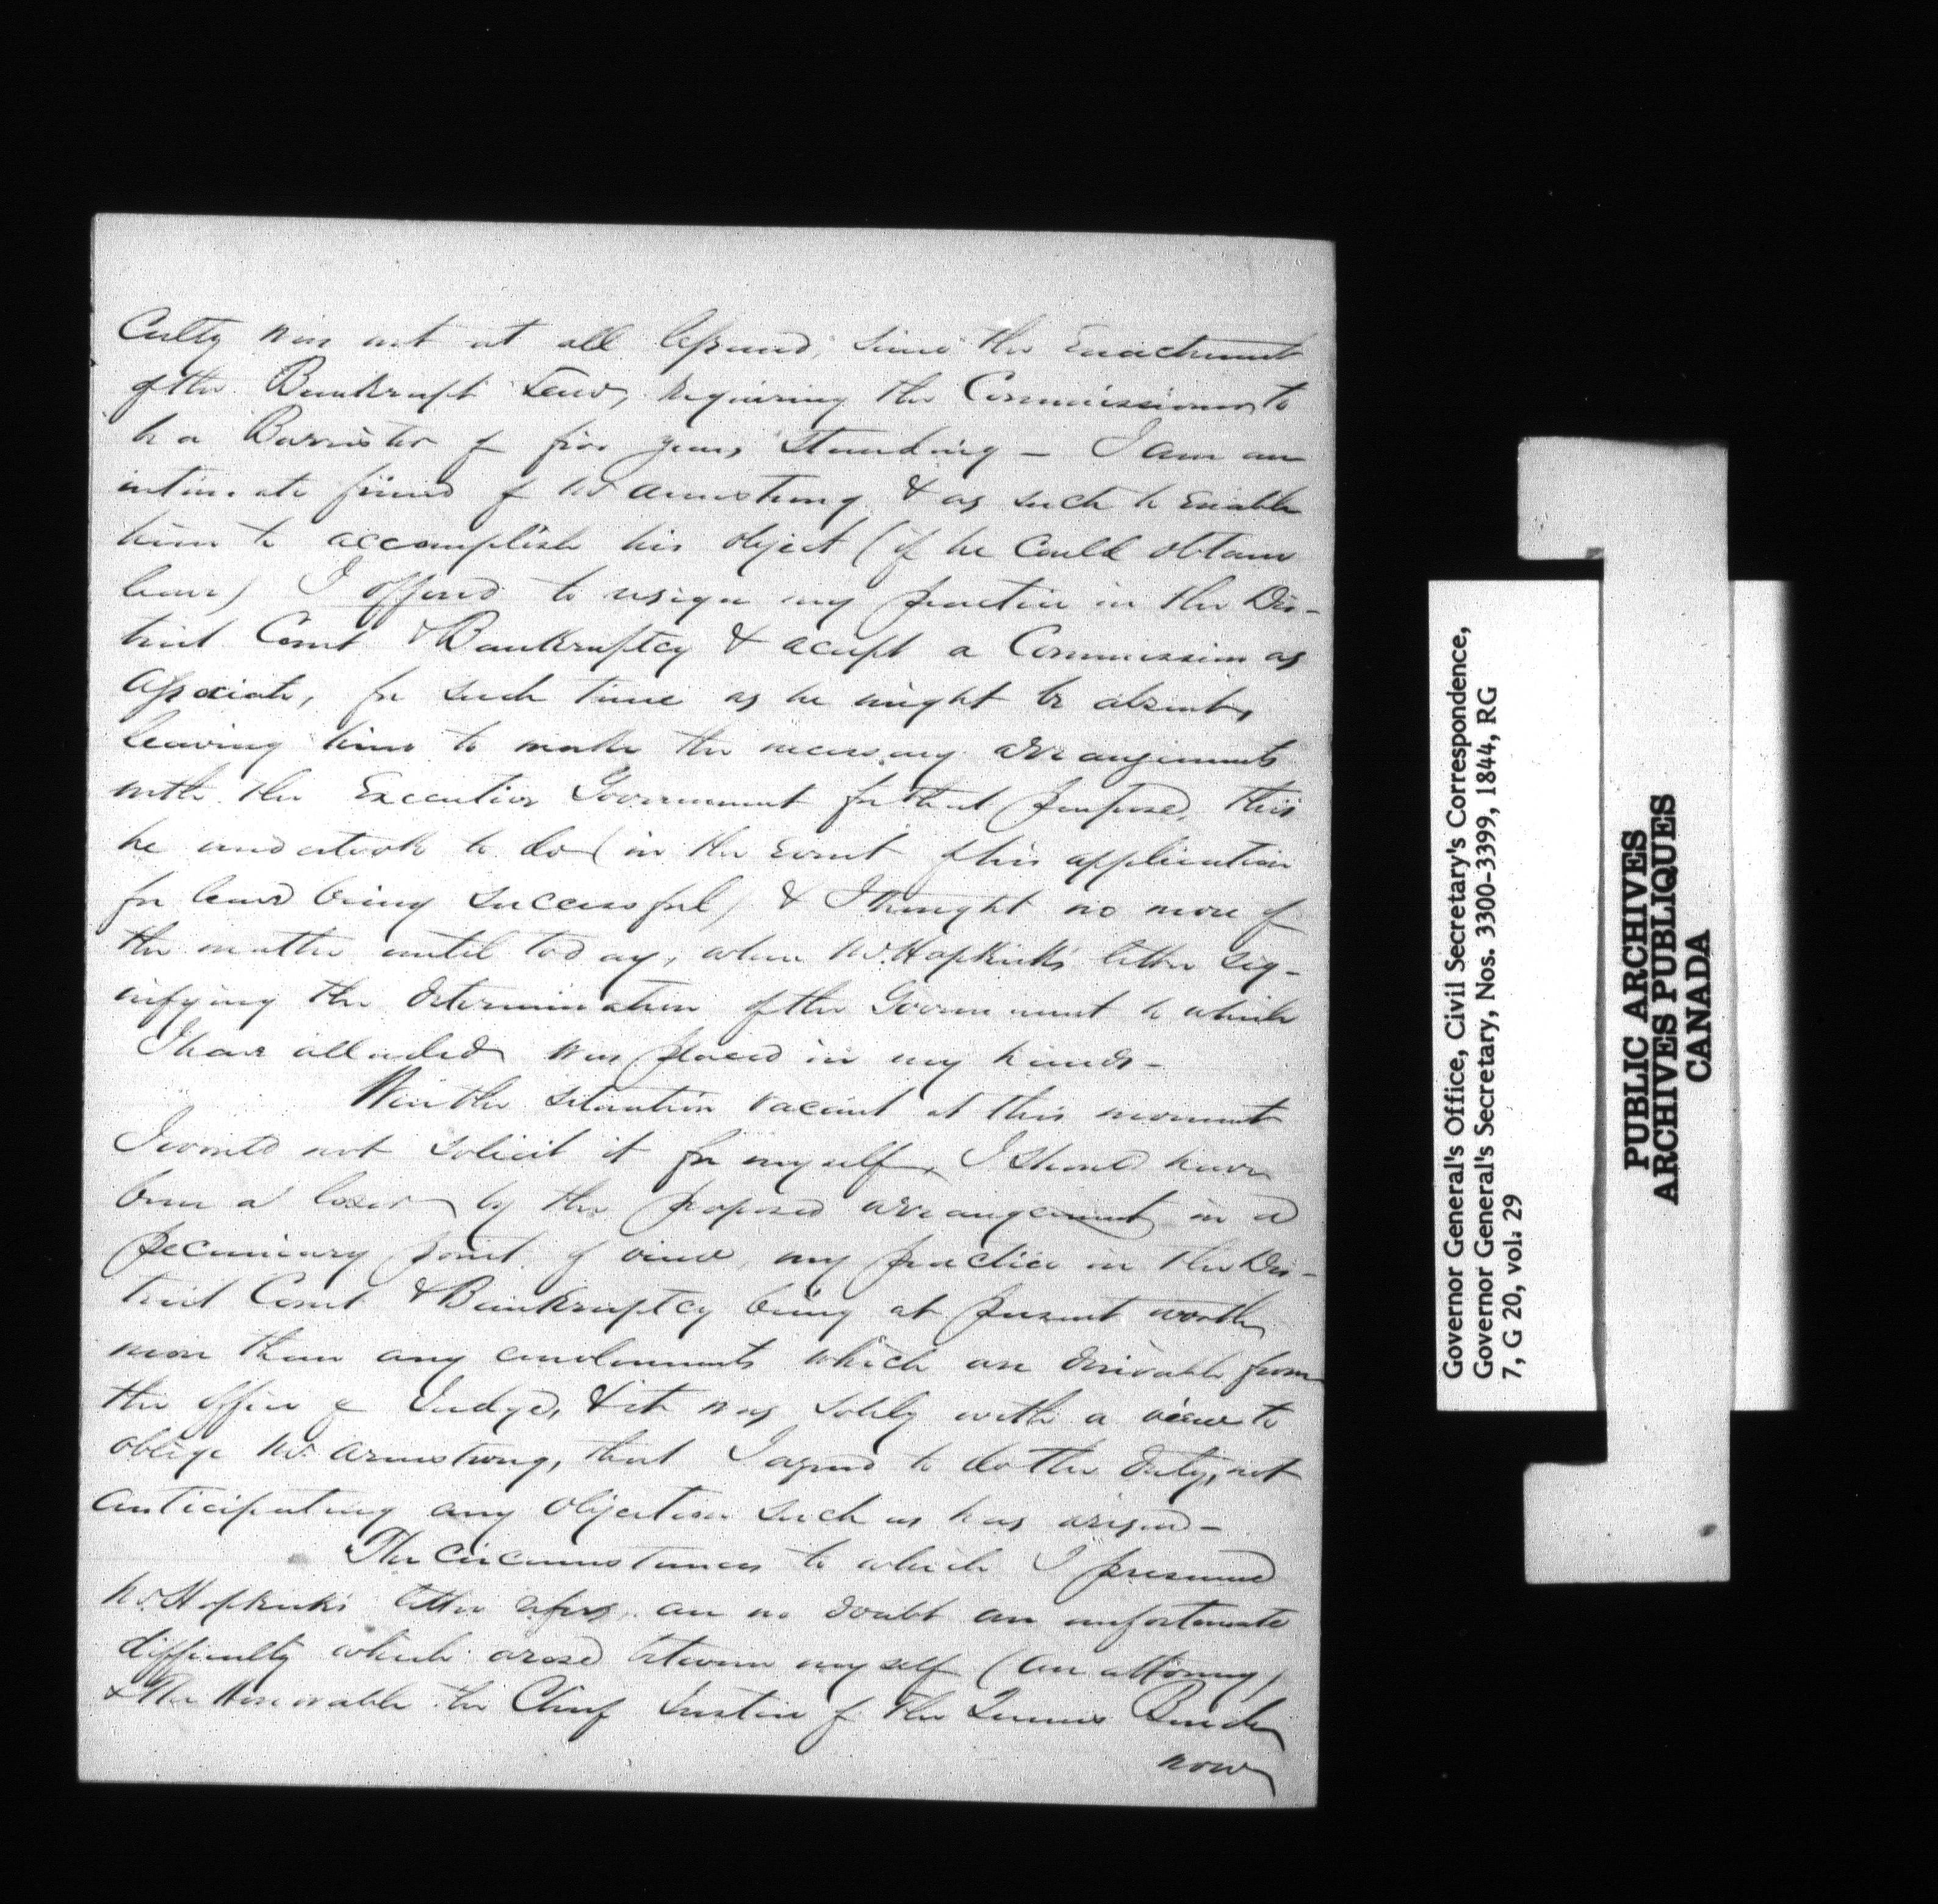 culty was not at all lessened, since the Enactment
of the Bankrupt Law, requiring the Commissioner to
be a Barrister of five years standing – I am an
intimate friend of Mr Armstrong & as such to enable
him to accomplish his object (if he could obtain
leave) I offered to resign my practice in the Dis-
trict Court & Bankruptcy & accept a Commission as
Associate, for such time as he might be absent,
leaving him to make the necessary arrangements
with the Executive Government for that purpose. This
he undertook to do (in the event of his application
for leave being successful) & I thought no more of
the matter until today, when Mr. Hopkirk's letter sig-
nifying the determination of the Government to which
I have alluded was placed in my hands –
Were the situation vacant at this moment
I would not solicit it for myself, I should have
been a loser by the proposed arrangement in a
pecuniary point of view, my practice in the Dis-
trict Court & Bankruptcy being at present worth
more than any emoluments which are derivable from
the office of Judge, & it was solely with a view to
oblige Mr. Armstrong, that I agreed to do the duty, not
anticipating any objection such as has arisen –
The circumstances to which I presume
Mr. Hopkirk's letter refers, are no doubt an unfortunate
difficulty which arose between myself (an attorney)
& The Honorable the Chief Justice of the Queens Bench
now
Governor General's Office, Civil Secretary's Correspondence,
Governor General's Secretary, Nos. 3300-3399, 1844, RG
7, G 20, vol. 29
PUBLIC ARCHIVES
ARCHIVES PUBLIQUES
CANADA